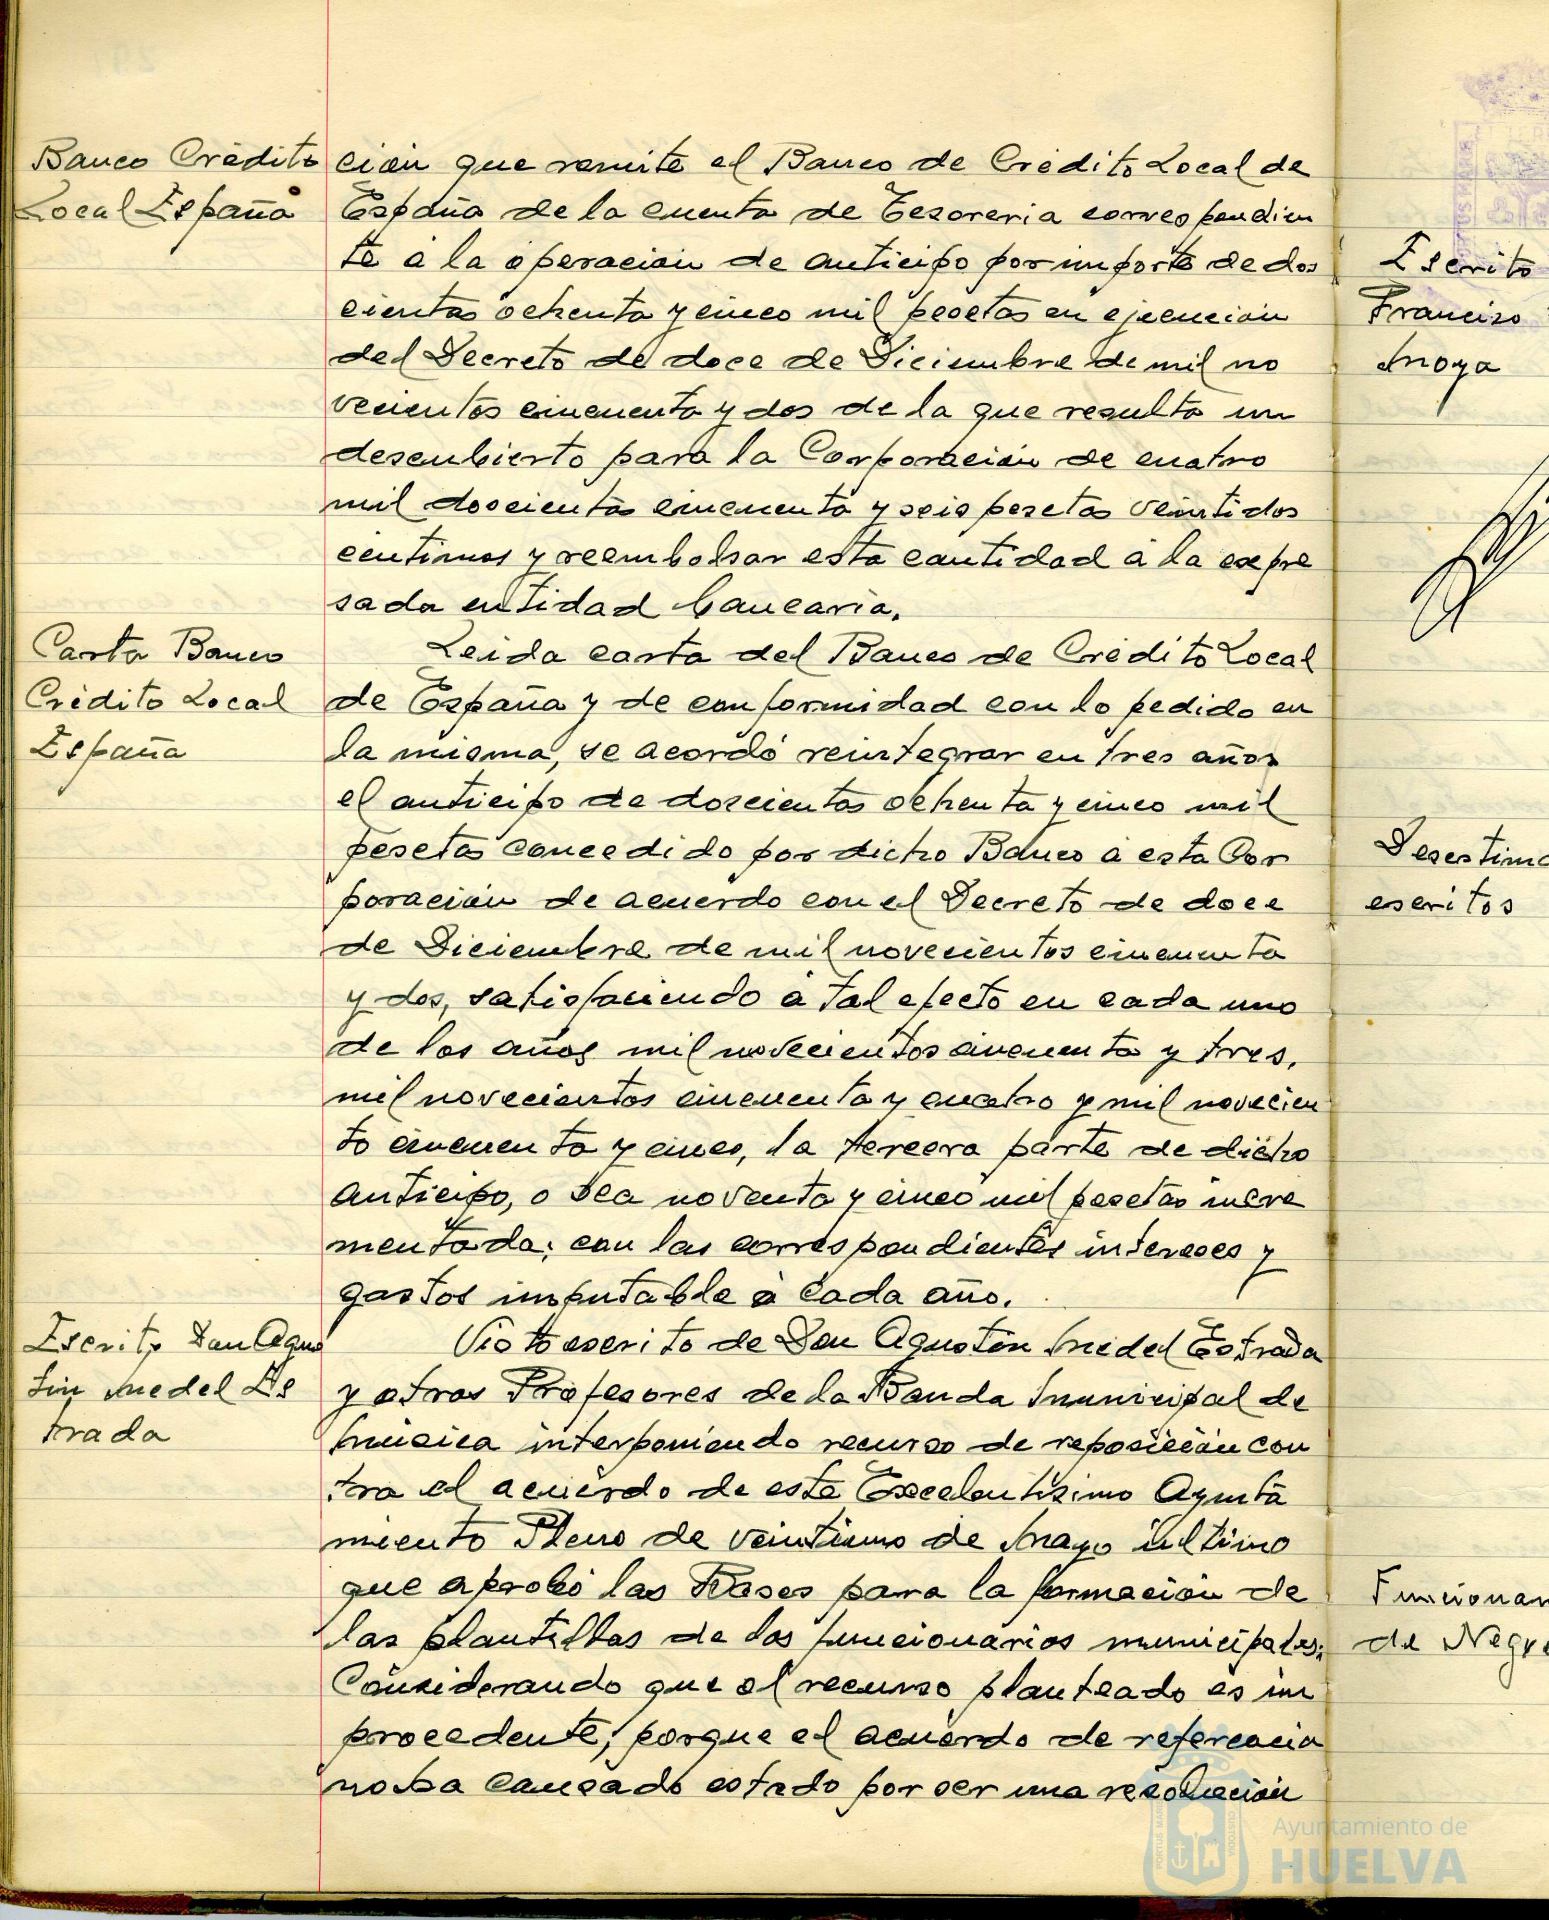 Banco Crédito
Local España
ción que remite el Banco de Crédito Local de
España de la cuenta de Tesoreria correspondien
te á la operación de anticipo por importe de dos
cientas ochenta y cinco mil pesetas en ejecución
del Decreto de doce de Diciembre de mil no
vecientos cincuenta y dos de la que resulta un
descubierto para la Corporación de cuatro
mil doscientas cincuenta y seis pesetas veintidos
centimos y reembolsar esta cantidad á la expre
sada entidad bancaria.
Carta Banco
Crédito Local
España
Leida carta del Banco de Crédito Local
de España y de conformidad con lo pedido en
la misma, se acordó reintegrar en tres años
el anticipo de doscientas ochenta y cinco mil
pesetas concedido por dicho Banco á esta Cor
poración de acuerdo con el Decreto de doce
de Diciembre de mil novecientos cincuenta
y dos, satisfaciendo á tal efecto en cada uno
de los años mil novecientos cincuenta y tres,
mil novecientos cincuenta y cuatro y mil novecien
to cincuenta y cinco, la tercera parte de dicho
anticipo, o sea noventa y cinco mil pesetas incre
mentada; con las correspondientes intereses y
gastos imputable á cada año.
Escrito Don Agus
tin Medel Es
trada
Visto escrito de Don Agustin Medel Estrada
y otros Profesores de la Banda Municipal de
Música interponiendo recurso de reposición con
tra el acuerdo de este Excelentísimo Ayunta
miento Pleno de veintiuno de Mayo último
que aprobó las Bases para la formación de
las plantillas de los funcionarios municipales;
Considerando que el recurso planteado es im
procedente, porque el acuerdo de referencia
no ha causado estado por ser una resolución
Escrito
Francisco
Moya
Desestima
escritos
Funcionar
de Negre
Ayuntamiento de
HUELVA